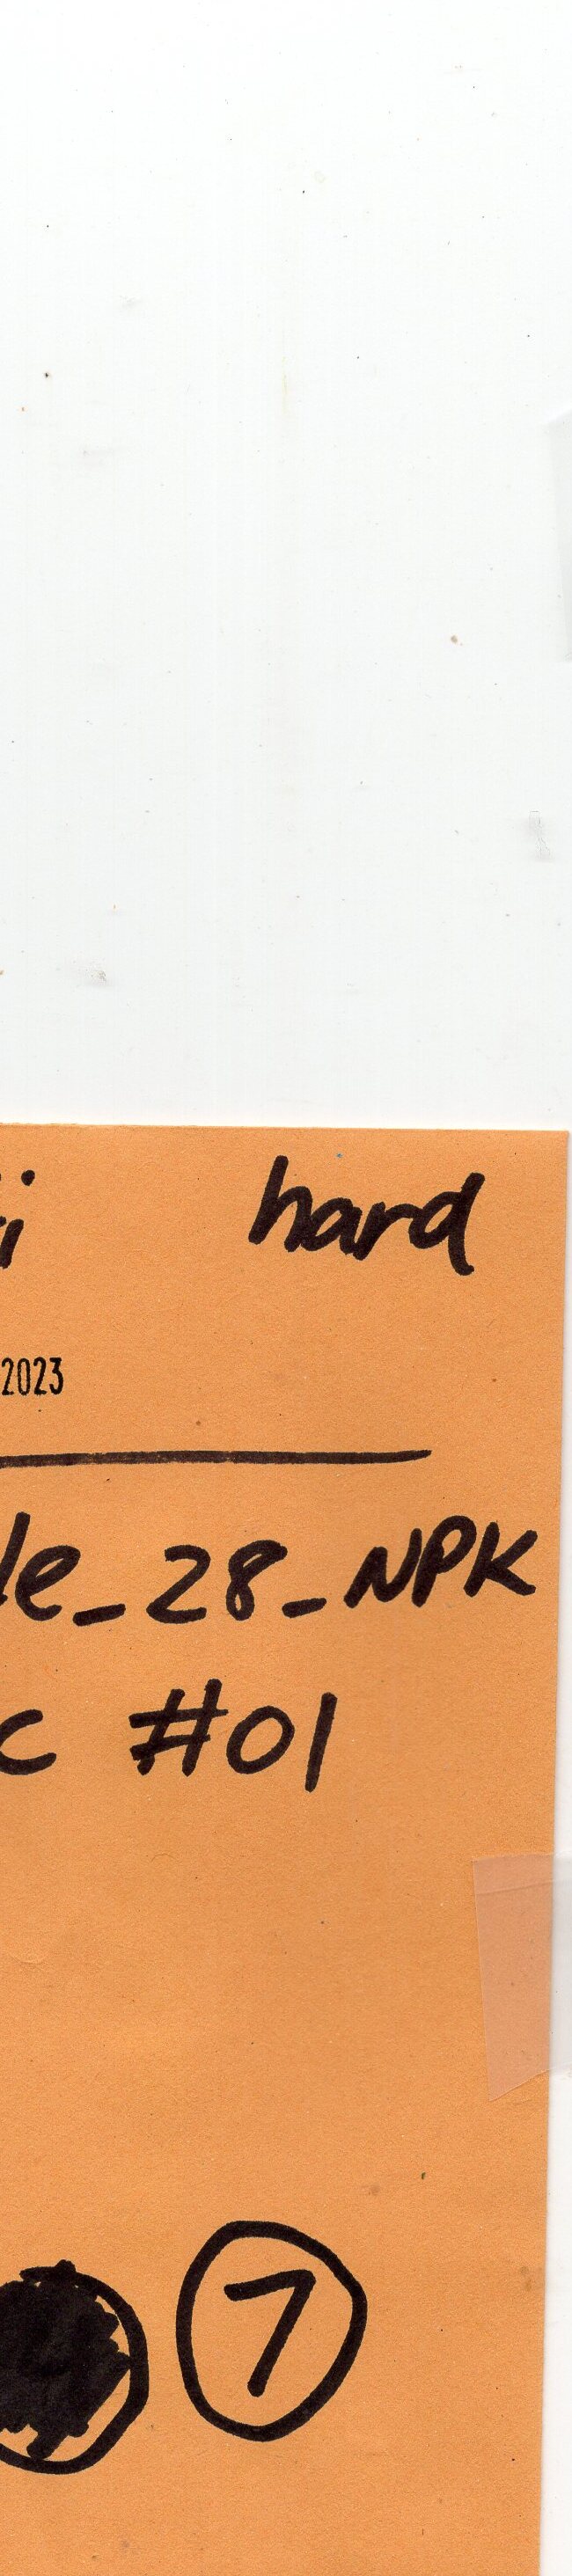 hard
2023
_28_NPK
#01
7